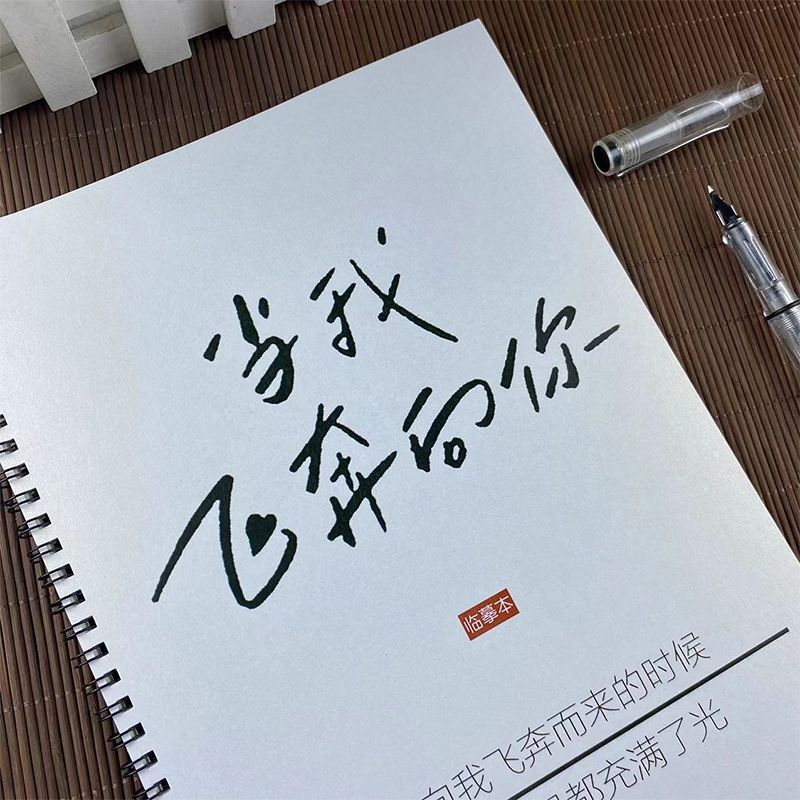 当我
飞奔向你
临摹本
向我飞奔而来的时候
都充满了光